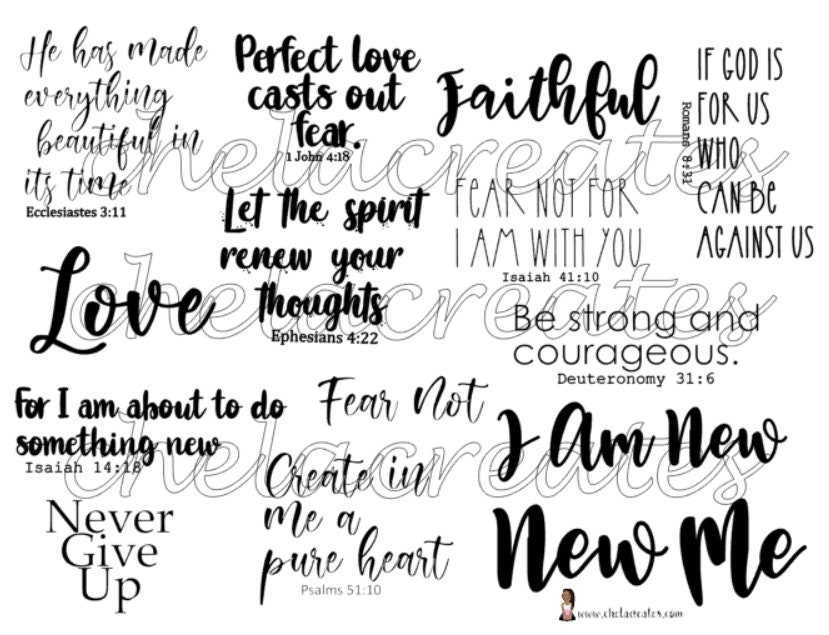 He has made
everything
beautiful in
its time
Ecclesiastes 3:11
Perfect love
casts out
fear.
1 John 4:18
Faithful
IF GOD IS
FOR US
WHO
CAN BE
AGAINST US
Romans 8:31
Let the spirit
renew your
thoughts
Ephesians 4:22
FEAR NOT FOR
I AM WITH YOU
Isaiah 41:10
Love
Be strong and
courageous.
Deuteronomy 31:6
For I am about to do
something new
Isaiah 14:18
Fear Not
I Am New
Create in
me a
pure heart
Psalms 51:10
Never
Give
Up
New Me
www.chelacreates.com
chelacreates
chelacreates
chelacreates